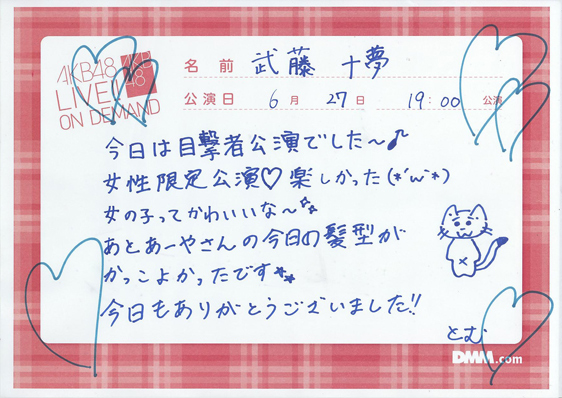 AKB48
LIVE!!
ON DEMAND
AKB
48
名前 武藤 十夢
公演日 6月 27日 19:00 公演
今日は目撃者公演でした〜♪
女性限定公演♡楽しかった(*'ω'*)
女の子ってかわいいな〜
あとあーやさんの今日の髪型が
かっこよかったです
今日もありがとうございました!!
とむ
DMM.com